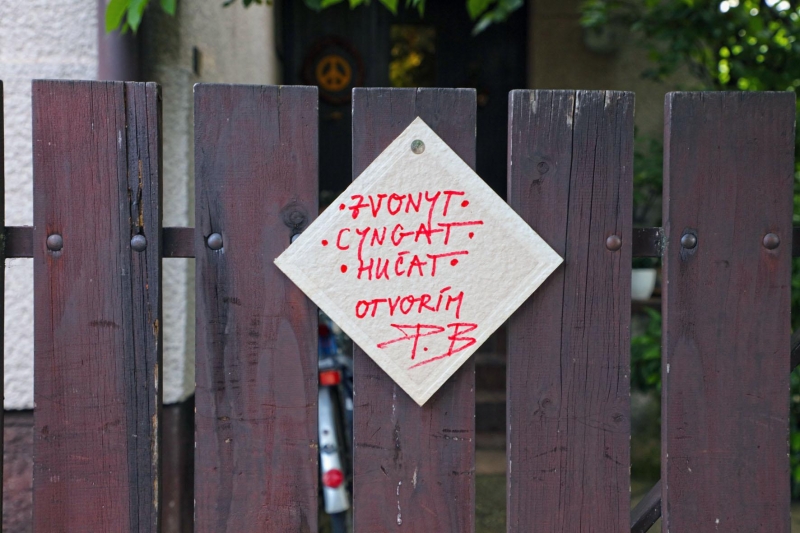 •ZVONYT•
•CYNGAT•
•HUČAT•
OTVORÍM
P.B